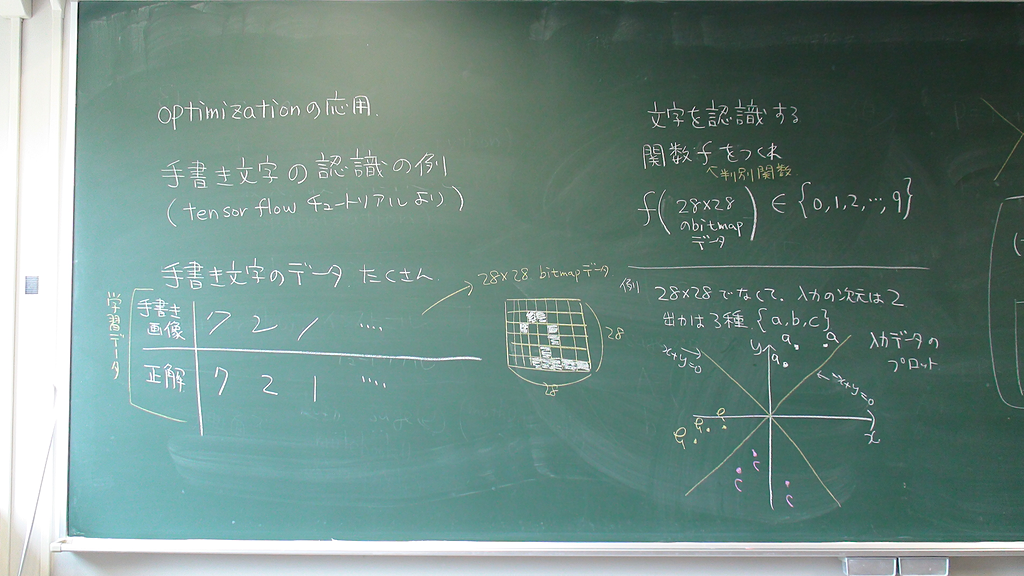 optimizationの応用.
手書き文字の認識の例
(tensor flow チュートリアルより)
手書き文字のデータ たくさん
学習データ
手書き画像 7 2 1 ....
正解 7 2 1 ....
28×28 bitmapデータ
28
28
文字を認識する
関数fをつくれ
↖判別関数
f(28×28のbitmapデータ) ∈ {0,1,2,…,9}
例 28×28でなくて. 入力の次元は2
出力は3種 {a,b,c}
入力データの
プロット
x+y=0
y
a a
a
-x+y=0
x
c c
c